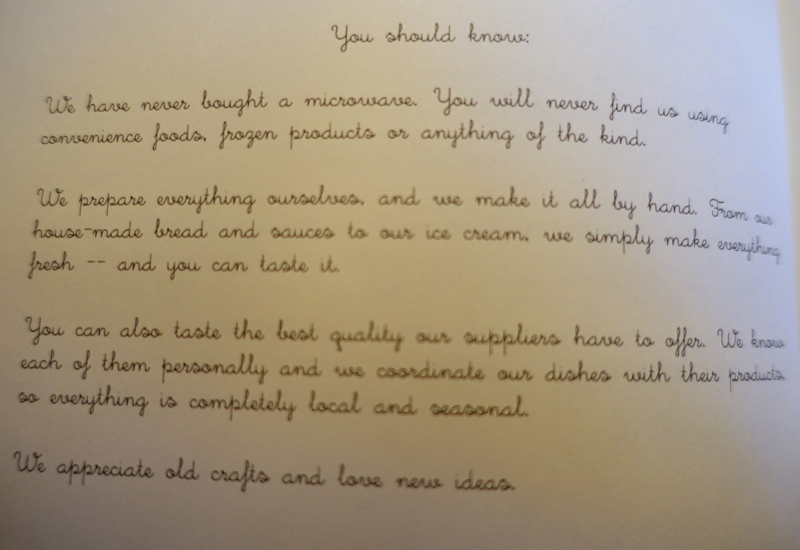 You should know:
We have never bought a microwave. You will never find us using
convenience foods, frozen products or anything of the kind.
We prepare everything ourselves, and we make it all by hand. From our
house-made bread and sauces to our ice cream, we simply make everything
fresh -- and you can taste it.
You can also taste the best quality our suppliers have to offer. We know
each of them personally and we coordinate our dishes with their products
so everything is completely local and seasonal.
We appreciate old crafts and love new ideas.